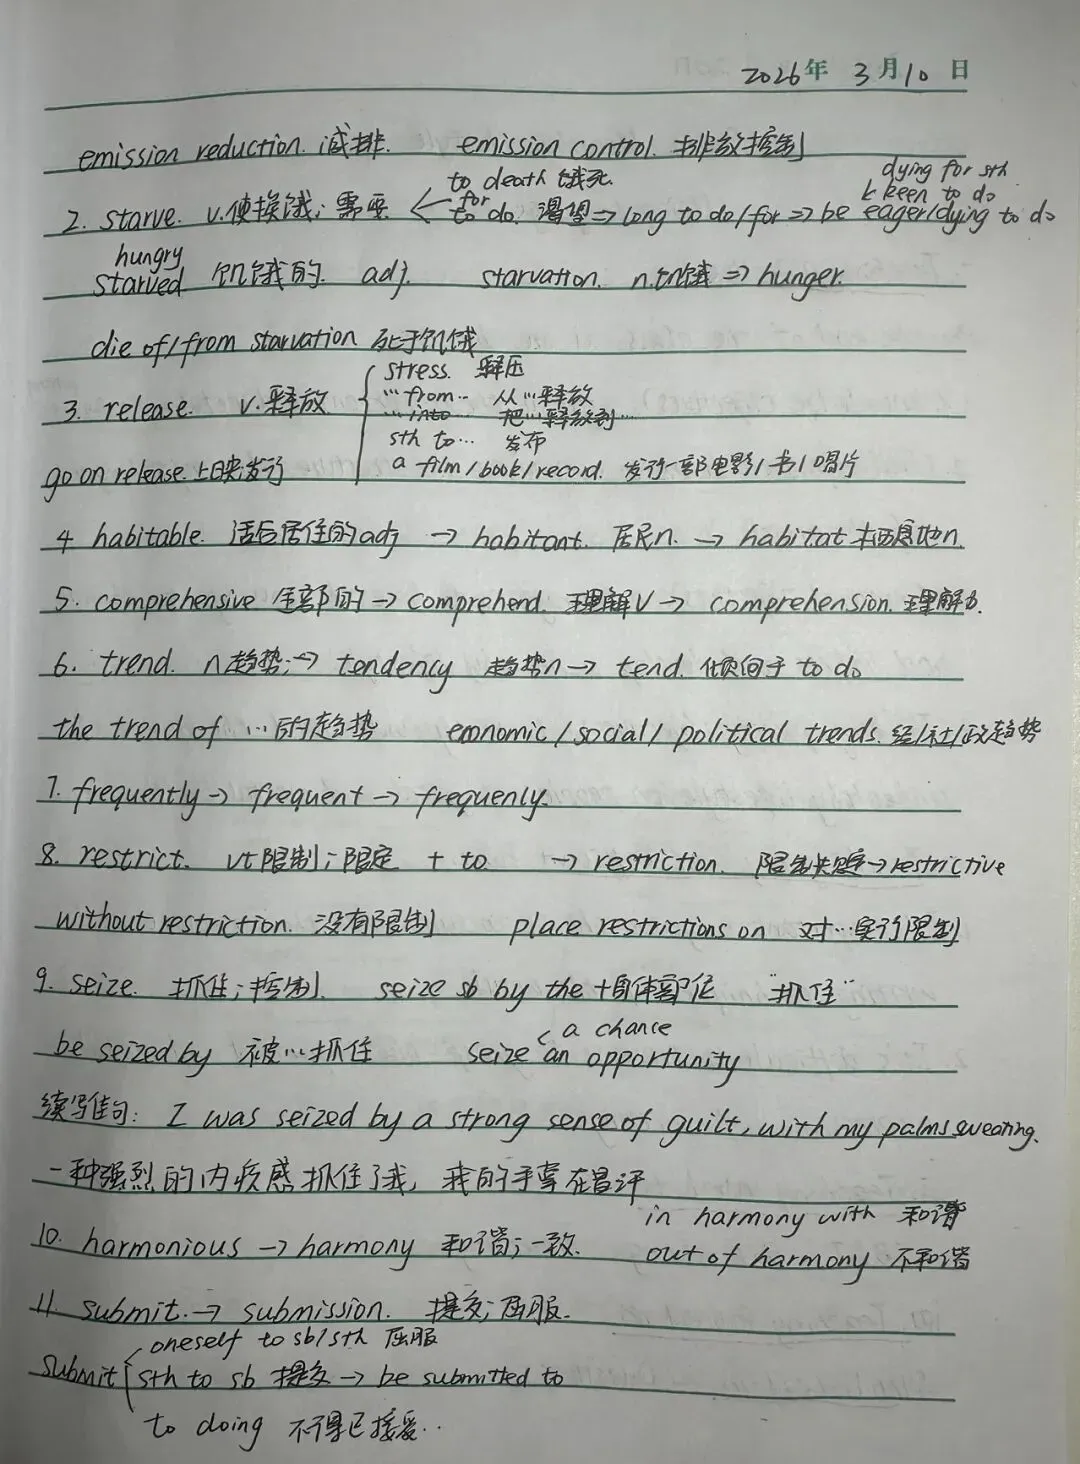 2026年 3月10日
emission reduction. 减排. emission control. 排放控制
dying for sth
to death 饿死. keen to do
2. starve. v.使挨饿; 需要 for to do. 渴望⇒long to do/for⇒be eager/dying to do
hungry
starved 饥饿的. adj. starvation. n.饥饿⇒hunger.
die of/from starvation 死于饥饿
stress. 释压
3. release. v.释放 …from… 从…释放
…into… 把…释放到…
sth to… 发布
go on release.上映发行 a film/book/record. 发行一部电影/书/唱片
4 habitable. 适合居住的adj → habitant. 居民n. → habitat 栖息地n.
5. comprehensive 全部的→comprehend. 理解V → comprehension. 理解力.
6. trend. n趋势;→ tendency 趋势n→ tend. 倾向于 to do
the trend of …的趋势 emonomic/social/political trends. 经/社/政趋势
7. frequently→ frequent→ frequenly.
8. restrict. vt限制;限定 + to → restriction. 限制规定→restrictive
without restriction. 没有限制 place restrictions on 对…实行限制
9. seize. 抓住;控制. seize sb by the +身体部位 "抓住"
a chance
be seized by 被…抓住 seize an opportunity
续写佳句: I was seized by a strong sense of guilt, with my palms sweating.
一种强烈的内疚感抓住了我, 我的手掌在冒汗
in harmony with 和谐
10. harmonious → harmony 和谐;一致. out of harmony 不和谐
11. submit.→ submission. 提交;屈服.
oneself to sb/sth 屈服
submit sth to sb 提交 → be submitted to
to doing 不得已接受…